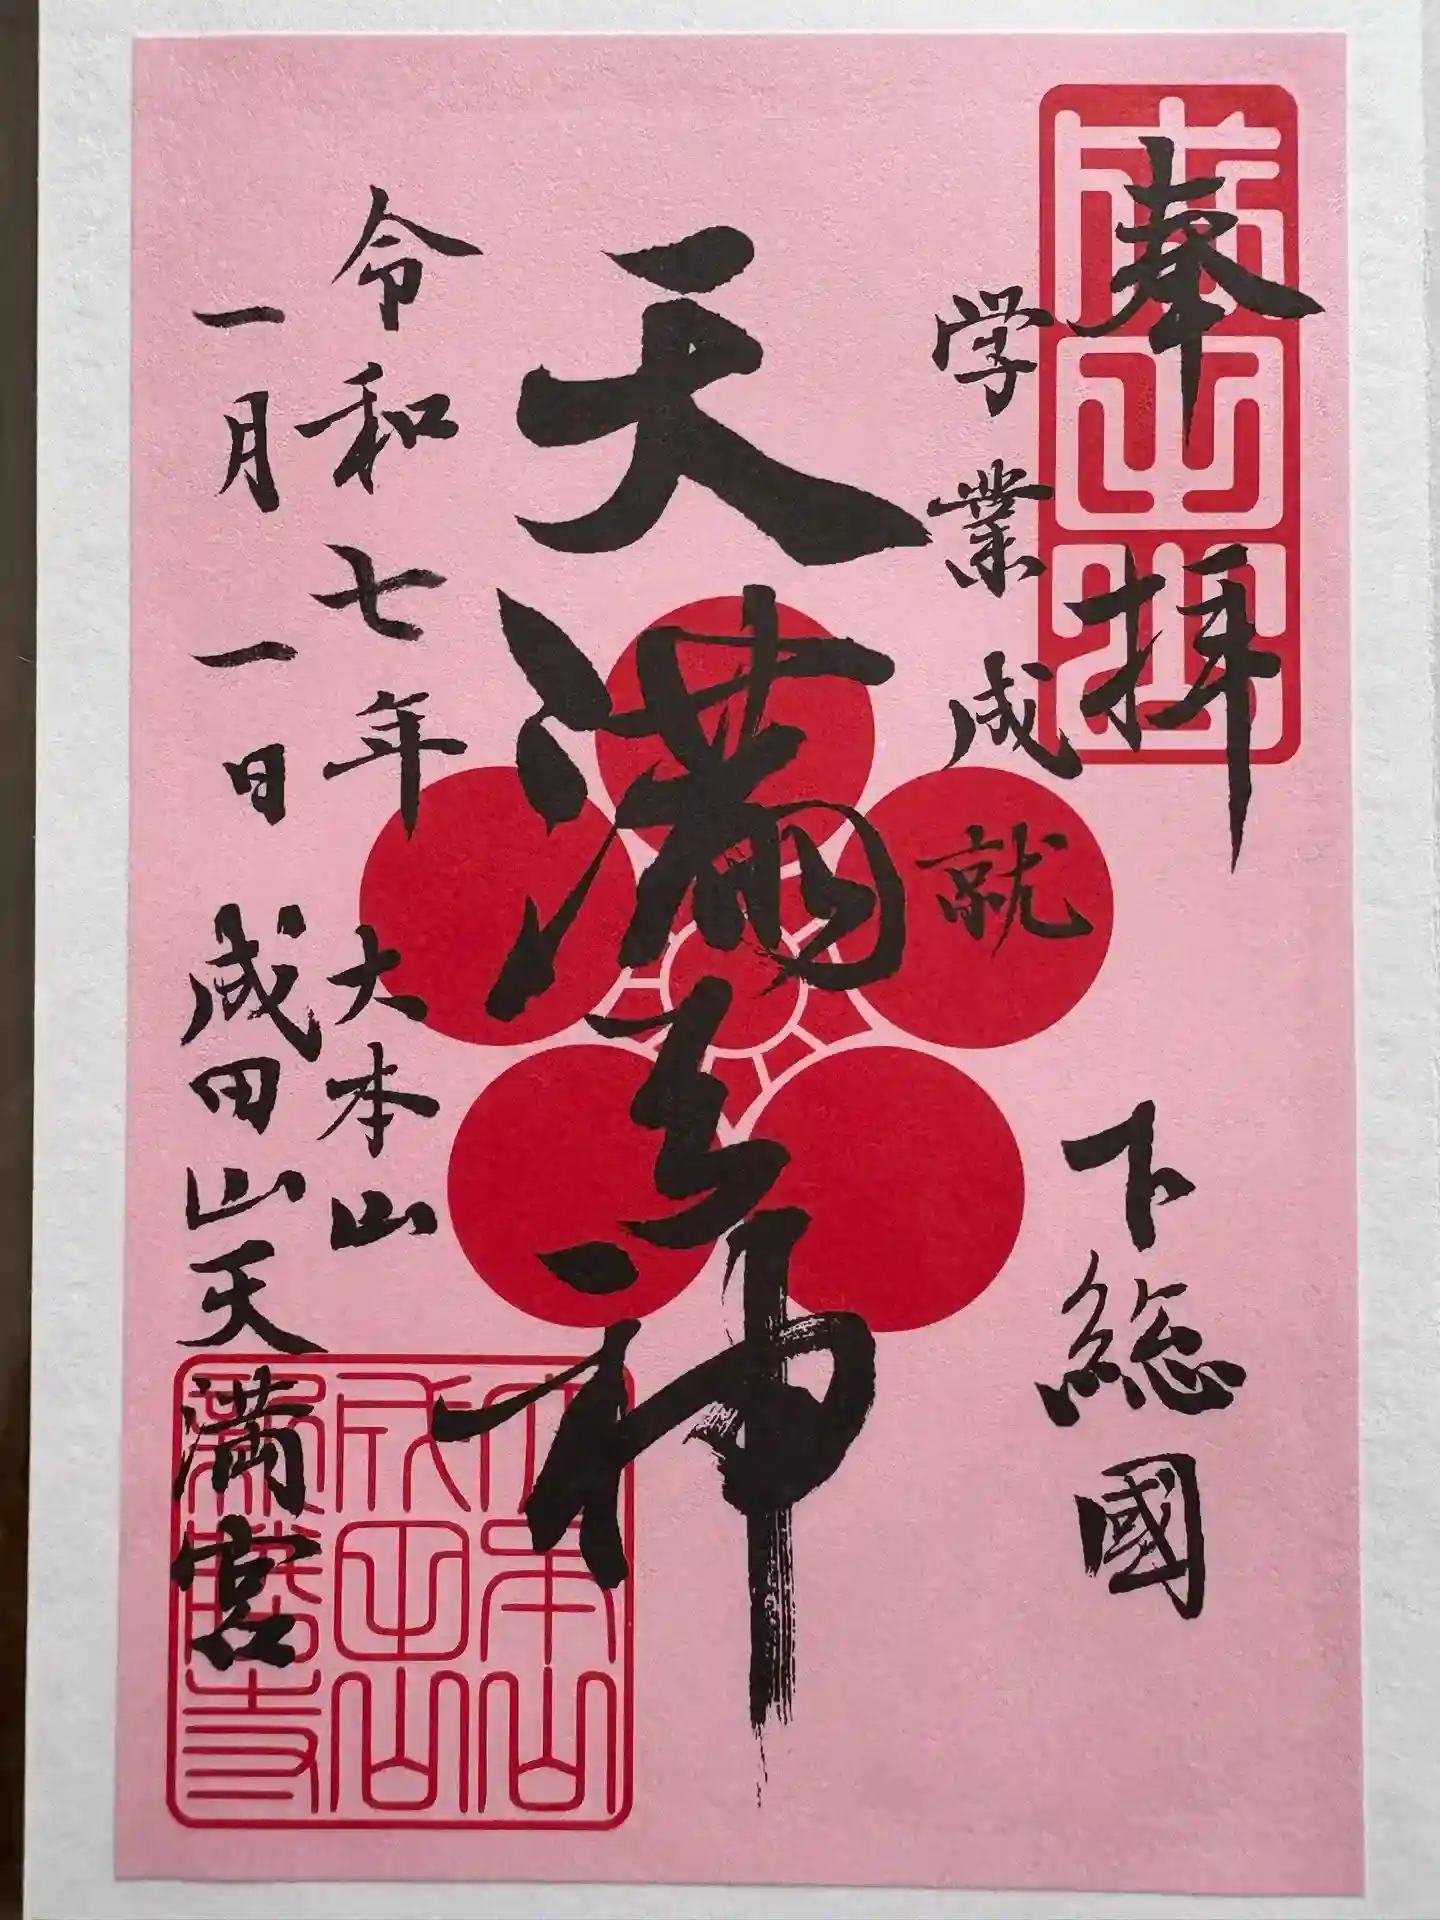 奉拝
下総國
学業成就
天満天神
令和七年
大本山
一月一日
成田山天満宮
大本山
成田山
新勝寺